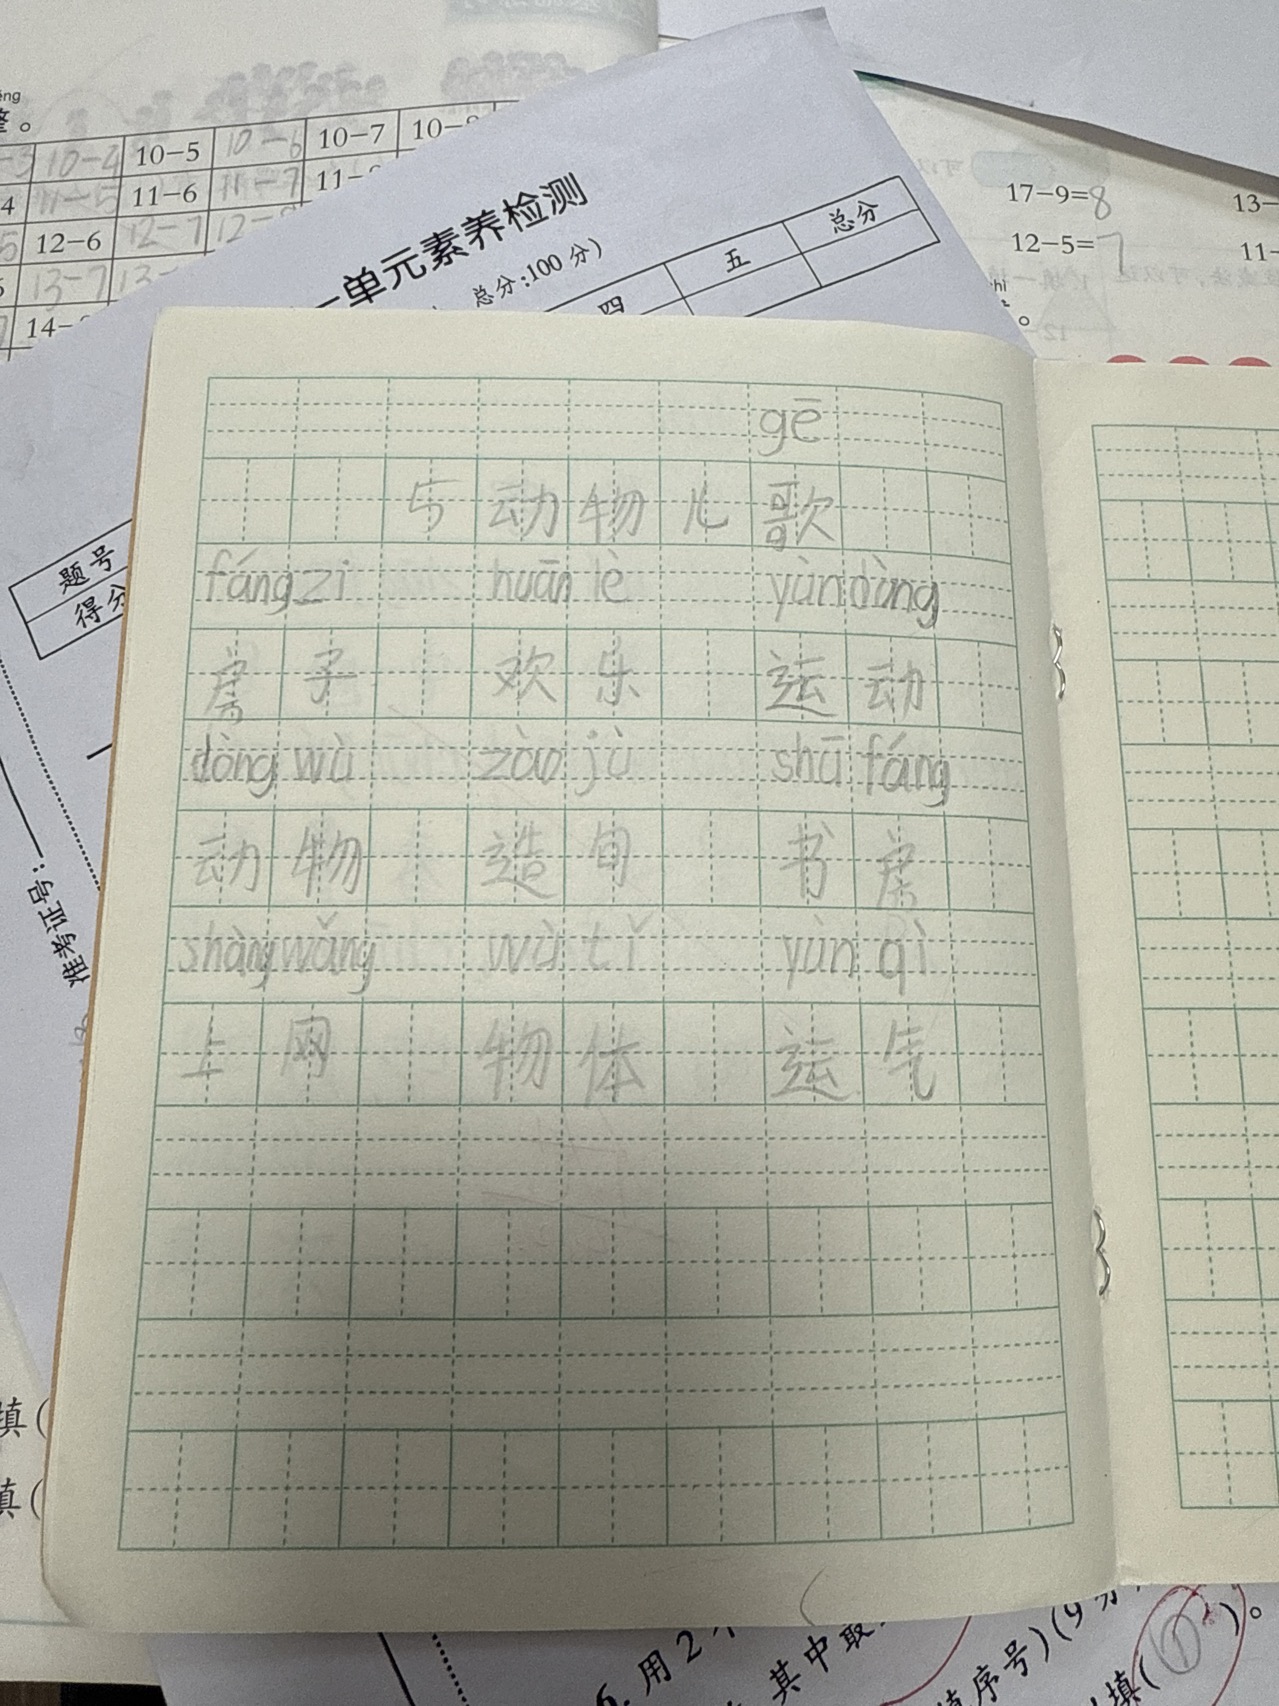 10-4 10-5 10-6 10-7
11-5 11-6 11-7
12-6 12-7
13-7
单元素养检测
总分:100分)
四 五 总分
17-9=8
12-5=7
题号
得分
准考证号:
gē
5 动物儿歌
fángzi huān lè yùndòng
房子 欢乐 运动
dòng wù zào jù shū fáng
动物 造句 书房
shàngwǎng wù tǐ yùn qì
上网 物体 运气
填(
填(
6. 用2个
其中取
填序号)(9分
填(①)。